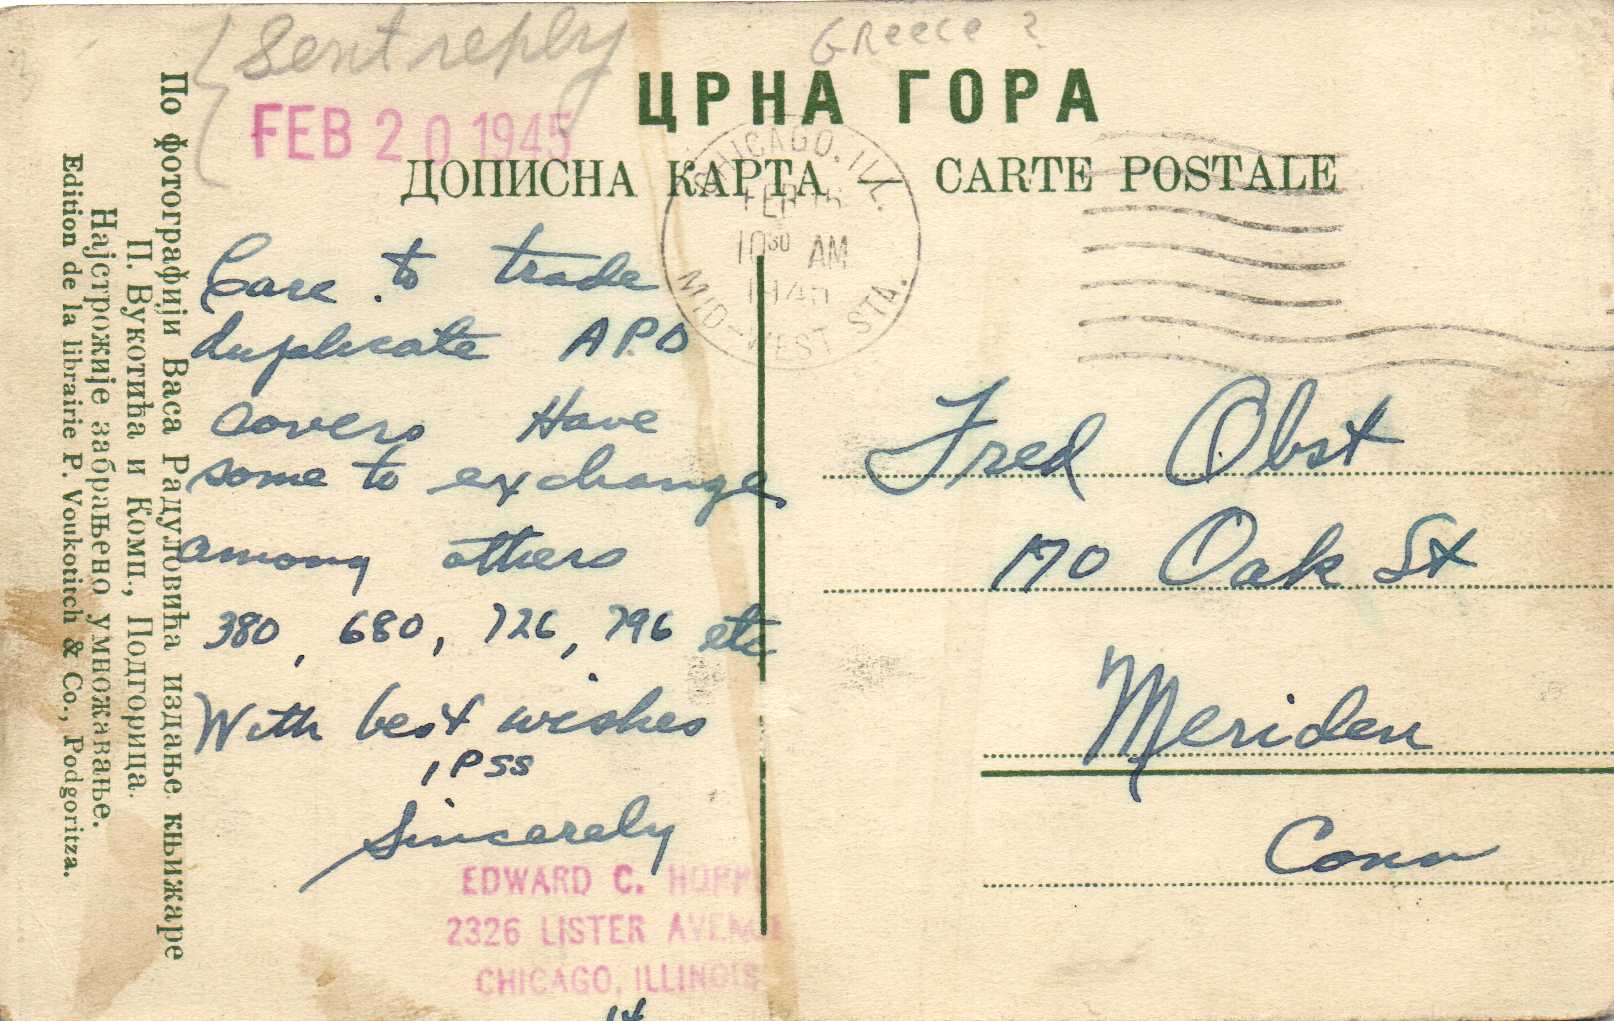 Sent reply
Greece ?
FEB 20 1945
ЦРНА ГОРА
ДОПИСНА КАРТА — CARTE POSTALE
CHICAGO, ILL.
FEB
10 30 AM
1945
MID-WEST STA.
Care to trade
duplicate APO
covers Have
some to exchange
among others
380, 680, 726, 796 etc
With best wishes
, PSS
Sincerely
EDWARD C.
2326 LISTER AVENUE
CHICAGO, ILLINOIS
14
Fred Obst
170 Oak St
Meriden
Conn
По фотографији Васа Радуловића издање књижаре
П. Вукотића и Комп., Подгорица.
Најстрожије забрањено умножавање.
Edition de la librairie P. Voukotitch & Co., Podgoritza.